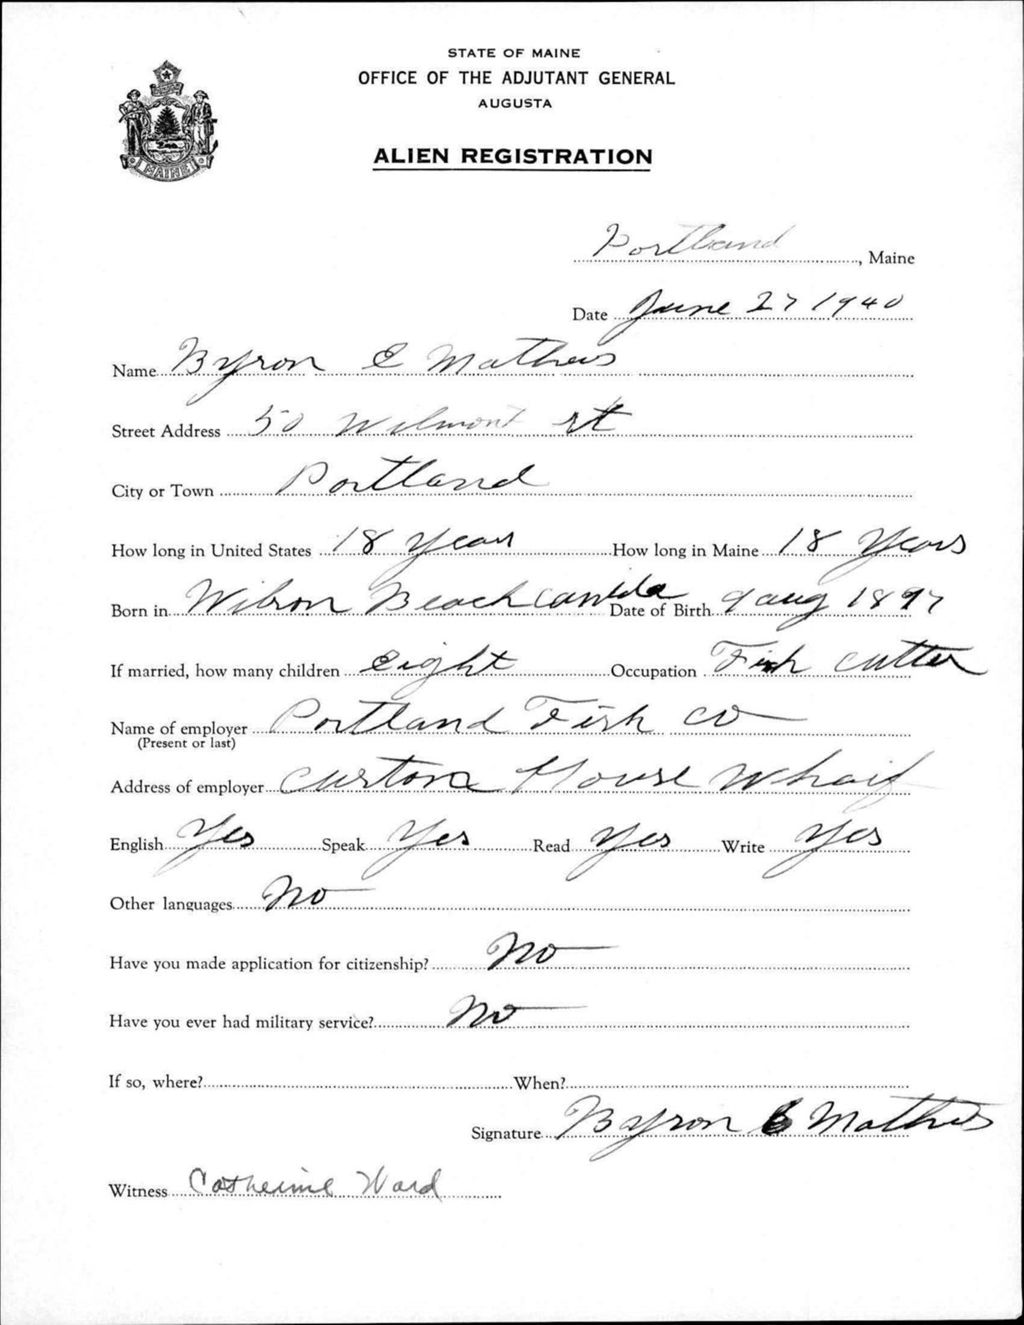 STATE OF MAINE
OFFICE OF THE ADJUTANT GENERAL
AUGUSTA
ALIEN REGISTRATION
MAINE
Portland, Maine
Date June 27 1940
Name Byron E Mathews
Street Address 50 Wilmont st
City or Town Portland
How long in United States 18 Years How long in Maine 18 Years
Born in Wilson Beach Canada Date of Birth 9 aug 1897
If married, how many children eight Occupation Fish cutter
Name of employer Portland Fish co
(Present or last)
Address of employer Custom House Wharf
English Yes Speak Yes Read Yes Write Yes
Other languages No
Have you made application for citizenship? No
Have you ever had military service? No
If so, where? When?
Signature Byron E Mathews
Witness Catherine Ward